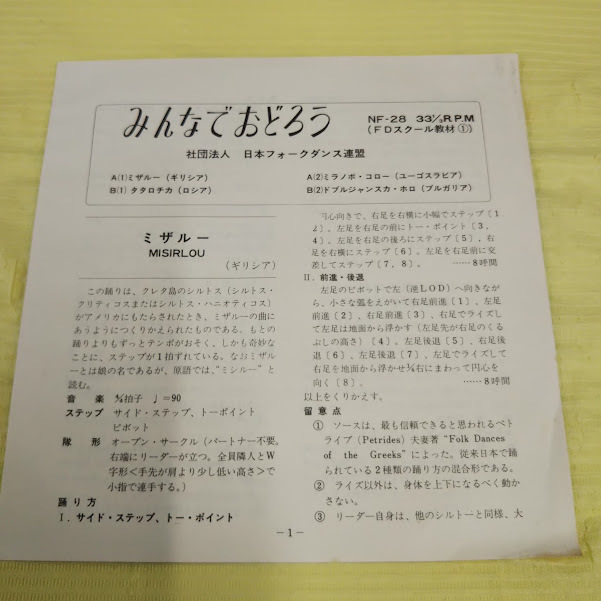 みんなでおどろう
NF-28 33⅓R.P.M
(FDスクール教材①)
社団法人 日本フォークダンス連盟
A⑴ミザルー(ギリシア)
A⑵ミラノボ・コロー(ユーゴスラビア)
B⑴タタロチカ(ロシア)
B⑵ドブルジャンスカ・ホロ(ブルガリア)
ミザルー
MISIRLOU
(ギリシア)
この踊りは、クレタ島のシルトス(シルトス・
クリティコスまたはシルトス・ハニオティコス)
がアメリカにもたらされたとき、ミザルーの曲に
あうようにつくりかえられたものである。もとの
踊りよりもずっとテンポがおそく、しかも奇妙な
ことに、ステップが1拍ずれている。なおミザル
ーとは娘の名であるが、原語では、“ミシルー”と
読む。
音楽 4/4拍子 ♩=90
ステップ サイド・ステップ、トーポイント
ピボット
隊形 オープン・サークル(パートナー不要。
右端にリーダーが立つ。全員隣人とW
字形<手先が肩より少し低い高さ>で
小指で連手する。)
踊り方
Ⅰ.サイド・ステップ、トー・ポイント
円心向きで、右足を右横に小幅でステップ〔1
2〕。左足を右足の前にトー・ポイント〔3,
4〕。左足を右足の後ろにステップ〔5〕、右
足を右横にステップ〔6〕。左足を右足前に交
差してステップ〔7,8〕。 ……8呼間
Ⅱ.前進・後退
左足のピボットで左(逆LOD)へ向きなが
ら、小さな弧をえがいて右足前進〔1〕、左足
前進〔2〕、右足前進〔3〕、右足でライズし
て左足は地面から浮かす(左足先が右足のくる
ぶしの高さ)〔4〕。左足後退〔5〕、右足後
退〔6〕、左足後退〔7〕、左足でライズして
右足を地面から浮かせ¼右にまわって円心を
向く〔8〕。 ……8呼間
以上をくりかえす。
留意点
① ソースは、最も信頼できると思われるペト
ライブ(Petrides)夫妻著“Folk Dances
of the Greeks”によった。従来日本で踊
られている2種類の踊り方の混合形である。
② ライズ以外は、身体を上下になるべく動か
さない。
③ リーダー自身は、他のシルトーと同様、大
—1—